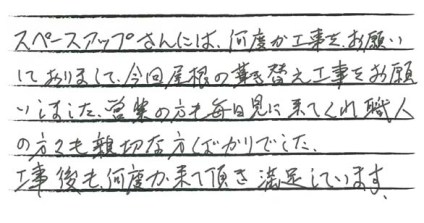 スペースアップさんには、何度か工事を、お願い
しておりまして、今回屋根の葺き替え工事をお願
いしました、営業の方も毎日見に来てくれ職人
の方々も親切な方ばかりでした、
工事後も、何度か来て頂き満足しています、